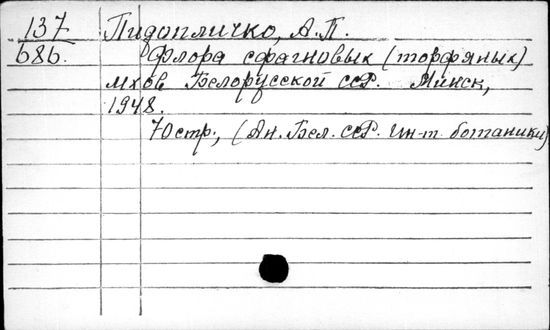 137 Пидопличко, А.П.
686. Флора сфагновых (торфяных)
мхов Белорусской ССР. Минск,
1948.
70стр., (Ан. Бел. ССР. Ин-т ботаники)